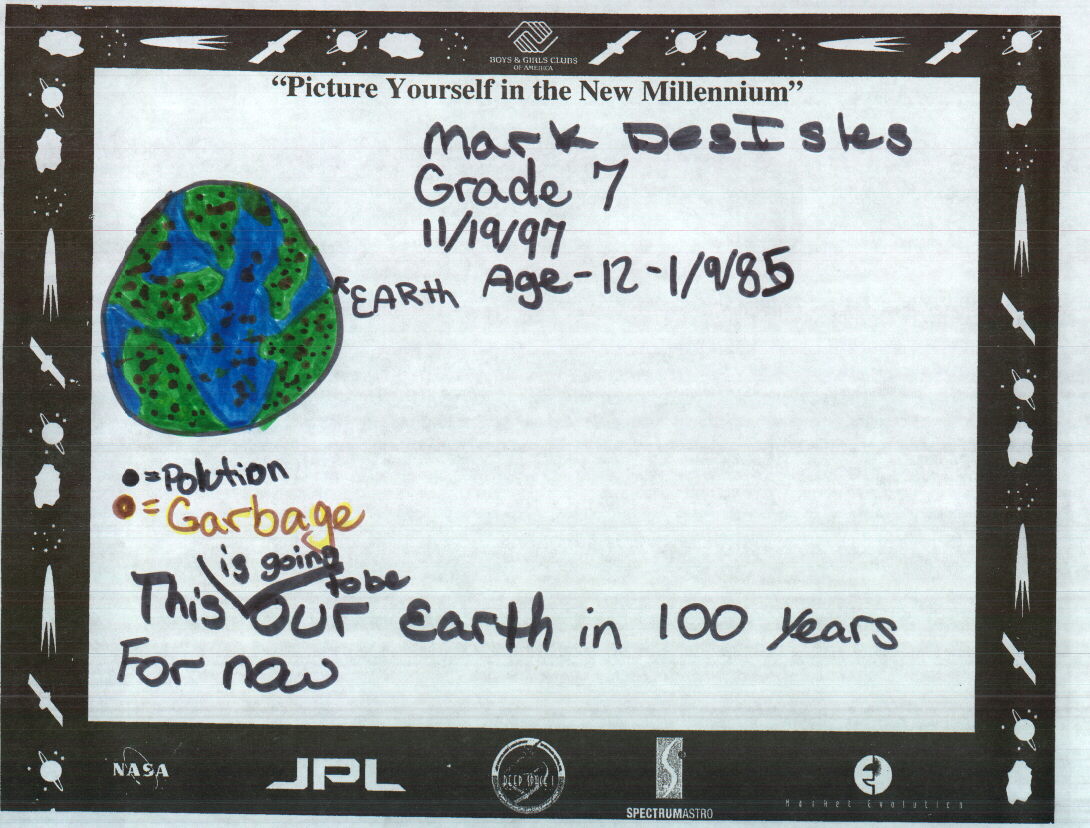 BOYS & GIRLS CLUBS
OF AMERICA
"Picture Yourself in the New Millennium"
Mark DesIsles
Grade 7
11/19/97
Age-12-1/9/85
EARth
=Polution
=Garbage
is going
to be
This our Earth in 100 years
For now
NASA
JPL
DEEP SPACE 1
SPECTRUMASTRO
Market Evolution